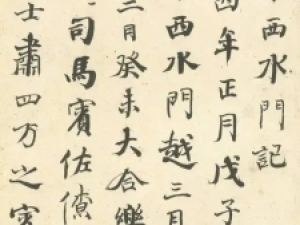 西水門記
四年正月戊子
西水門越三月
三日癸未大合樂
司馬賓佐僚
士肅四方之賓